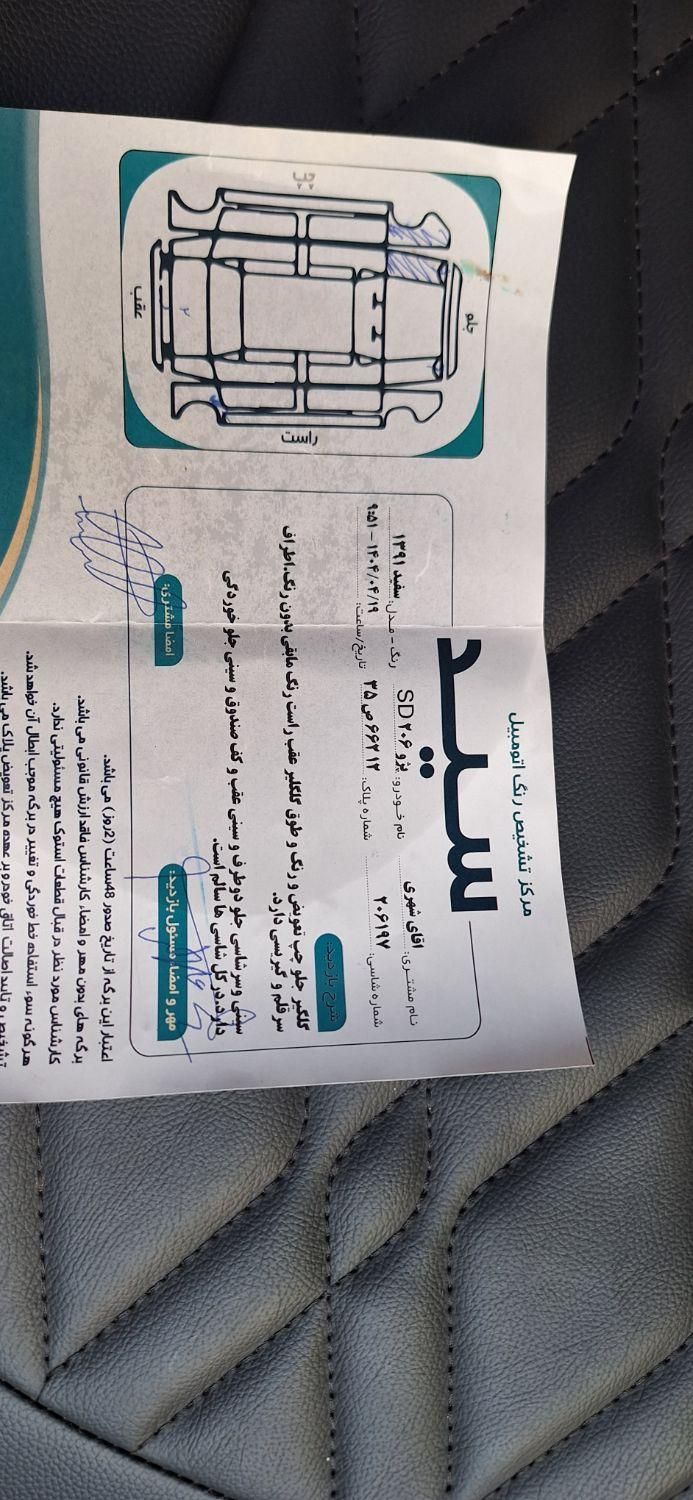 مرکز تشخیص رنگ اتومبیل
سپید
نام مشتری: اقای شهری نام خودرو: پژو ۲۰۶ SD رنگ - مدل: سفید ۱۳۹۱
شماره شاسی: ۲۰۶۱۹۷ شماره پلاک: ۱۲ ۶۶۲ص ۳۵ تاریخ/ساعت: ۱۴۰۴/۰۴/۱۹ - ۹:۵۱
شرح بازدید:
گلگیر جلو چپ تعویض و رنگ و طوق گلگلیر عقب راست رنگ مابقی بدون رنگ.اطراف
سر قلم و گیر نسی دارد.
سینی و سرشاسی جلو دوطرف و سینی عقب و کف صندوق و سینی جلو خوردگی
دارد.در کل شاسی ها سالم است.
مهر و امضاء مسئول بازدید:
امضا مشتری:
چپ
جلو
عقب
راست
اعتبار این برگه از تاریخ صدور 48ساعت (2روز) می باشد.
برگه های بدون مهر و امضاء کارشناس فاقد ارزش قانونی می باشد.
کارشناس مورد نظر در قبال قطعات استوک هیچ مسئولیتی ندارد.
هرگونه سوء استفاده، خط خوردگی و تغییر در برگه موجب ابطال آن خواهد شد.
تشخیص و تایید اصالت اتاق خودرو بر عهده مرکز تعویض پلاک می باشد.